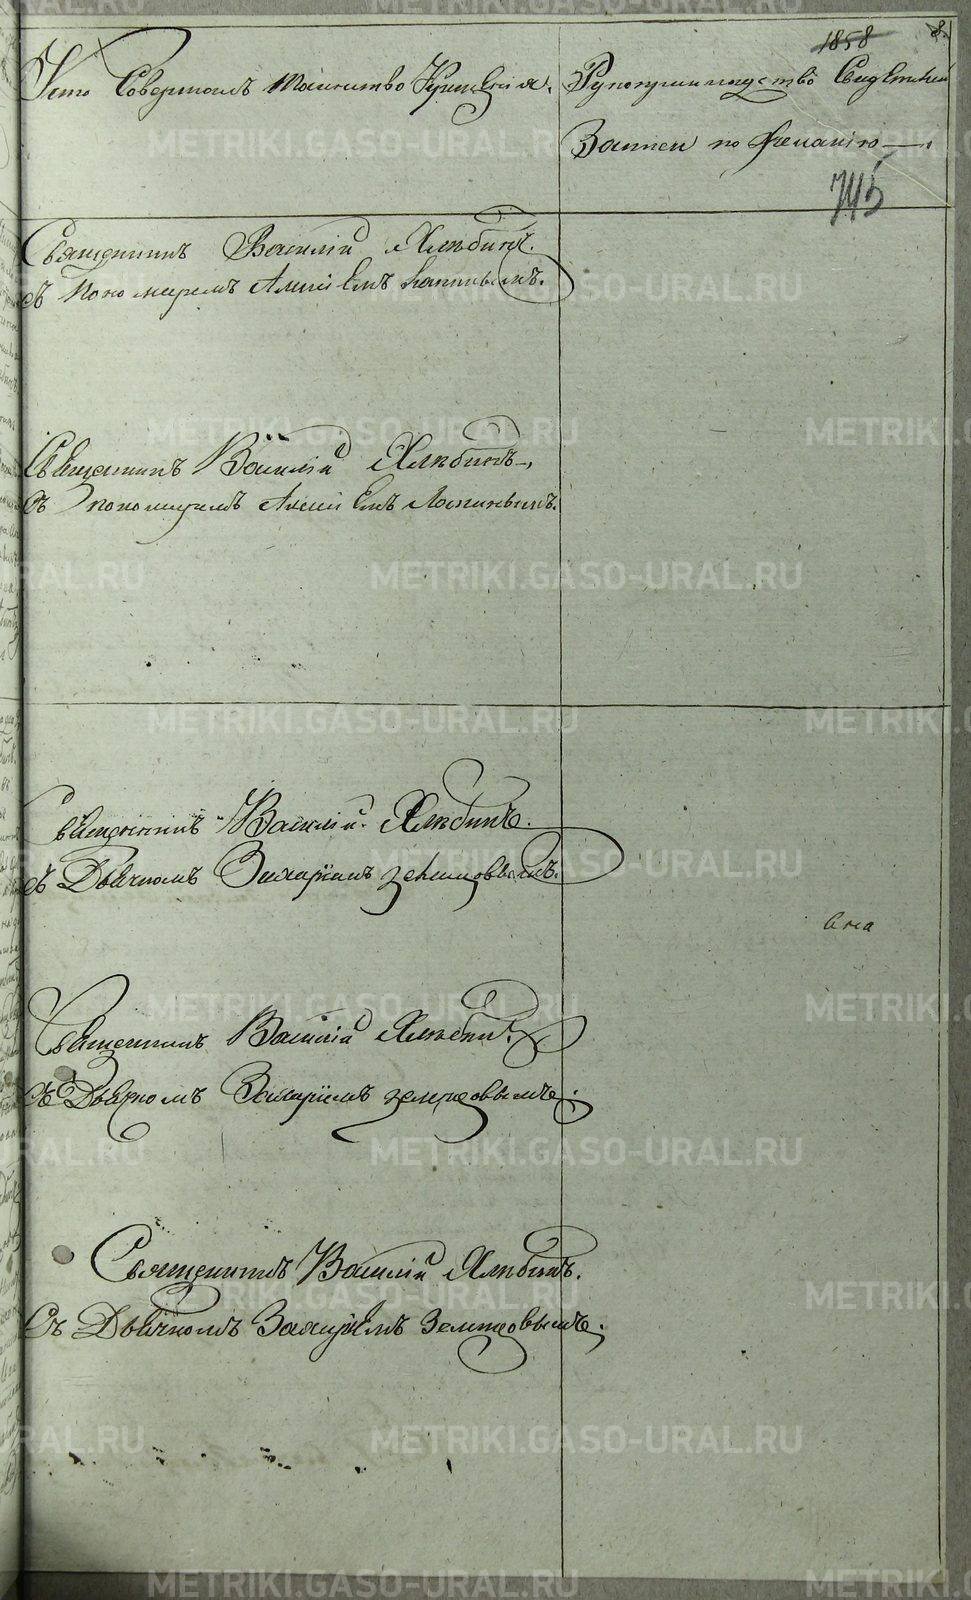 1858
8.
Кто Совершалъ таинство Крещенія.
Рукоприкладство Свидетелей
Записи по желанію
745
Священникъ Василій Хлѣбинъ.
съ Пономаремъ Алексіемъ
Священникъ Василій Хлѣбинъ,
съ пономаремъ Алексіемъ
Священникъ Василій Хлѣбинъ.
съ Дьячкомъ Захаріемъ Земцовымъ.
Священникъ Василій Хлѣбинъ.
съ Дьячкомъ Захаріемъ Земцовымъ.
Священникъ Василій Хлѣбинъ.
Съ Дьячкомъ Захаріемъ Земцовымъ.
METRIKI.GASO-URAL.RU